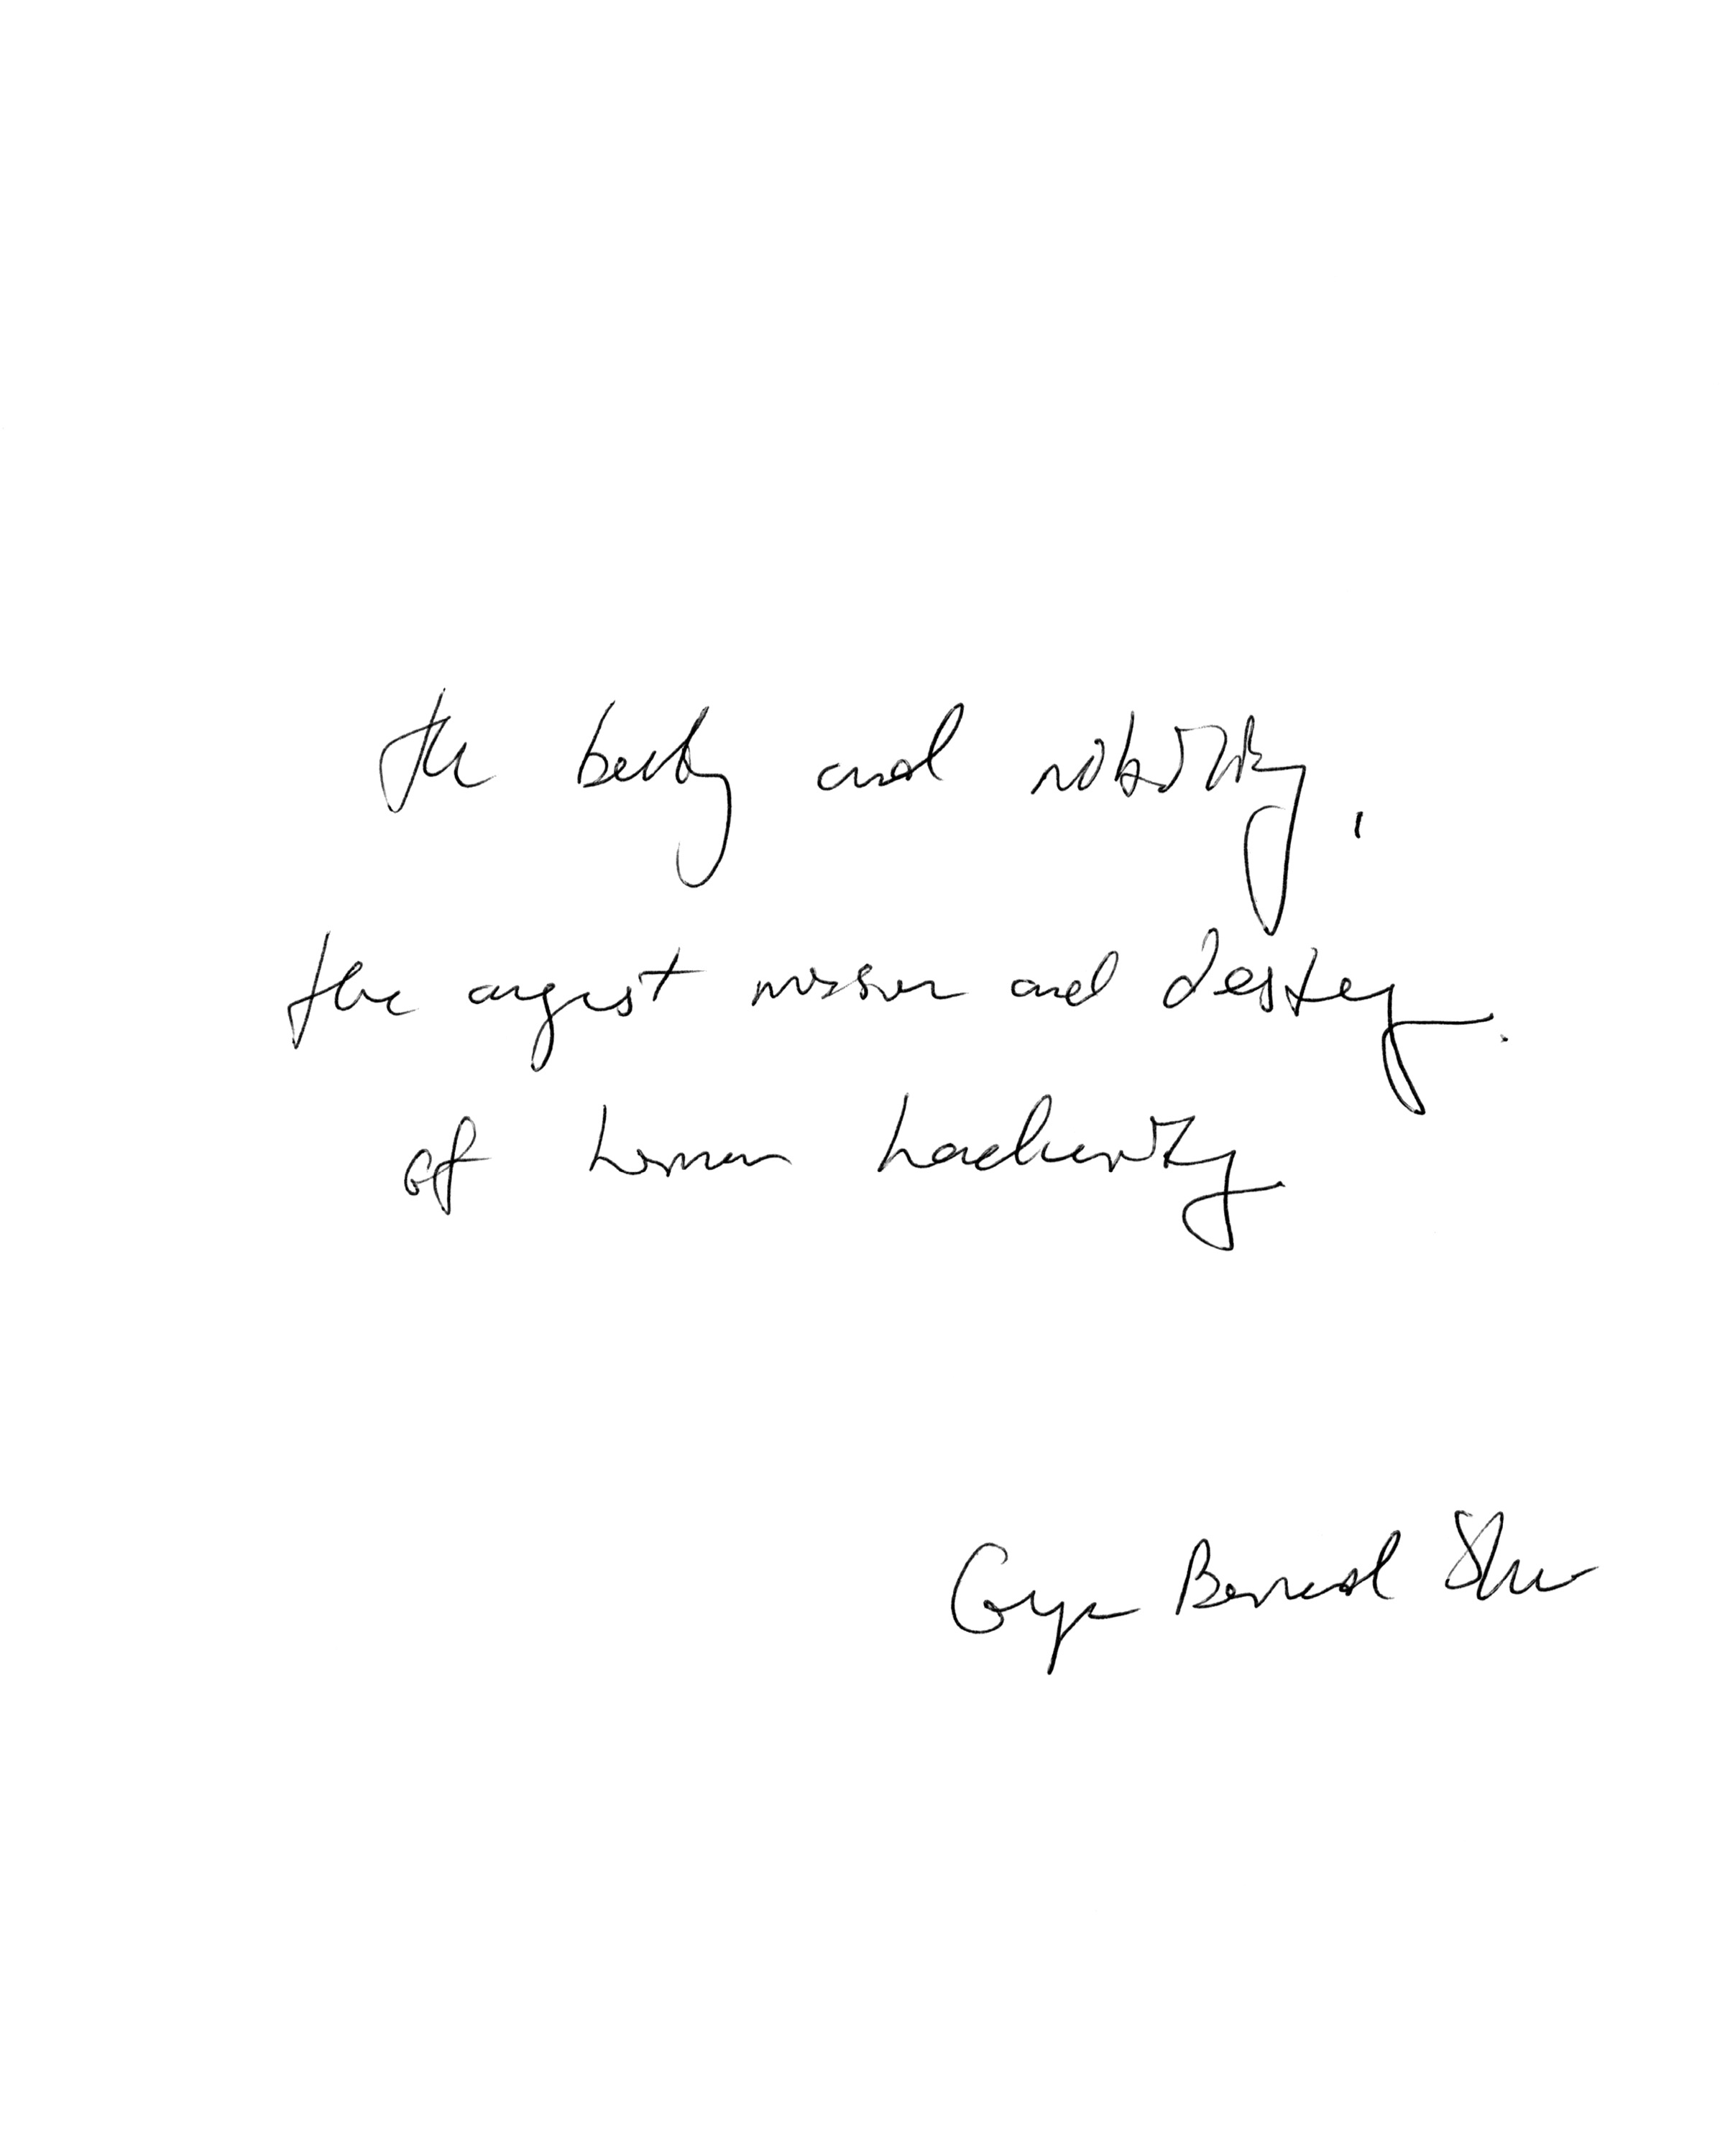 the beauty and nobility,
the august mission and destiny
of human handwriting
George Bernard Shaw